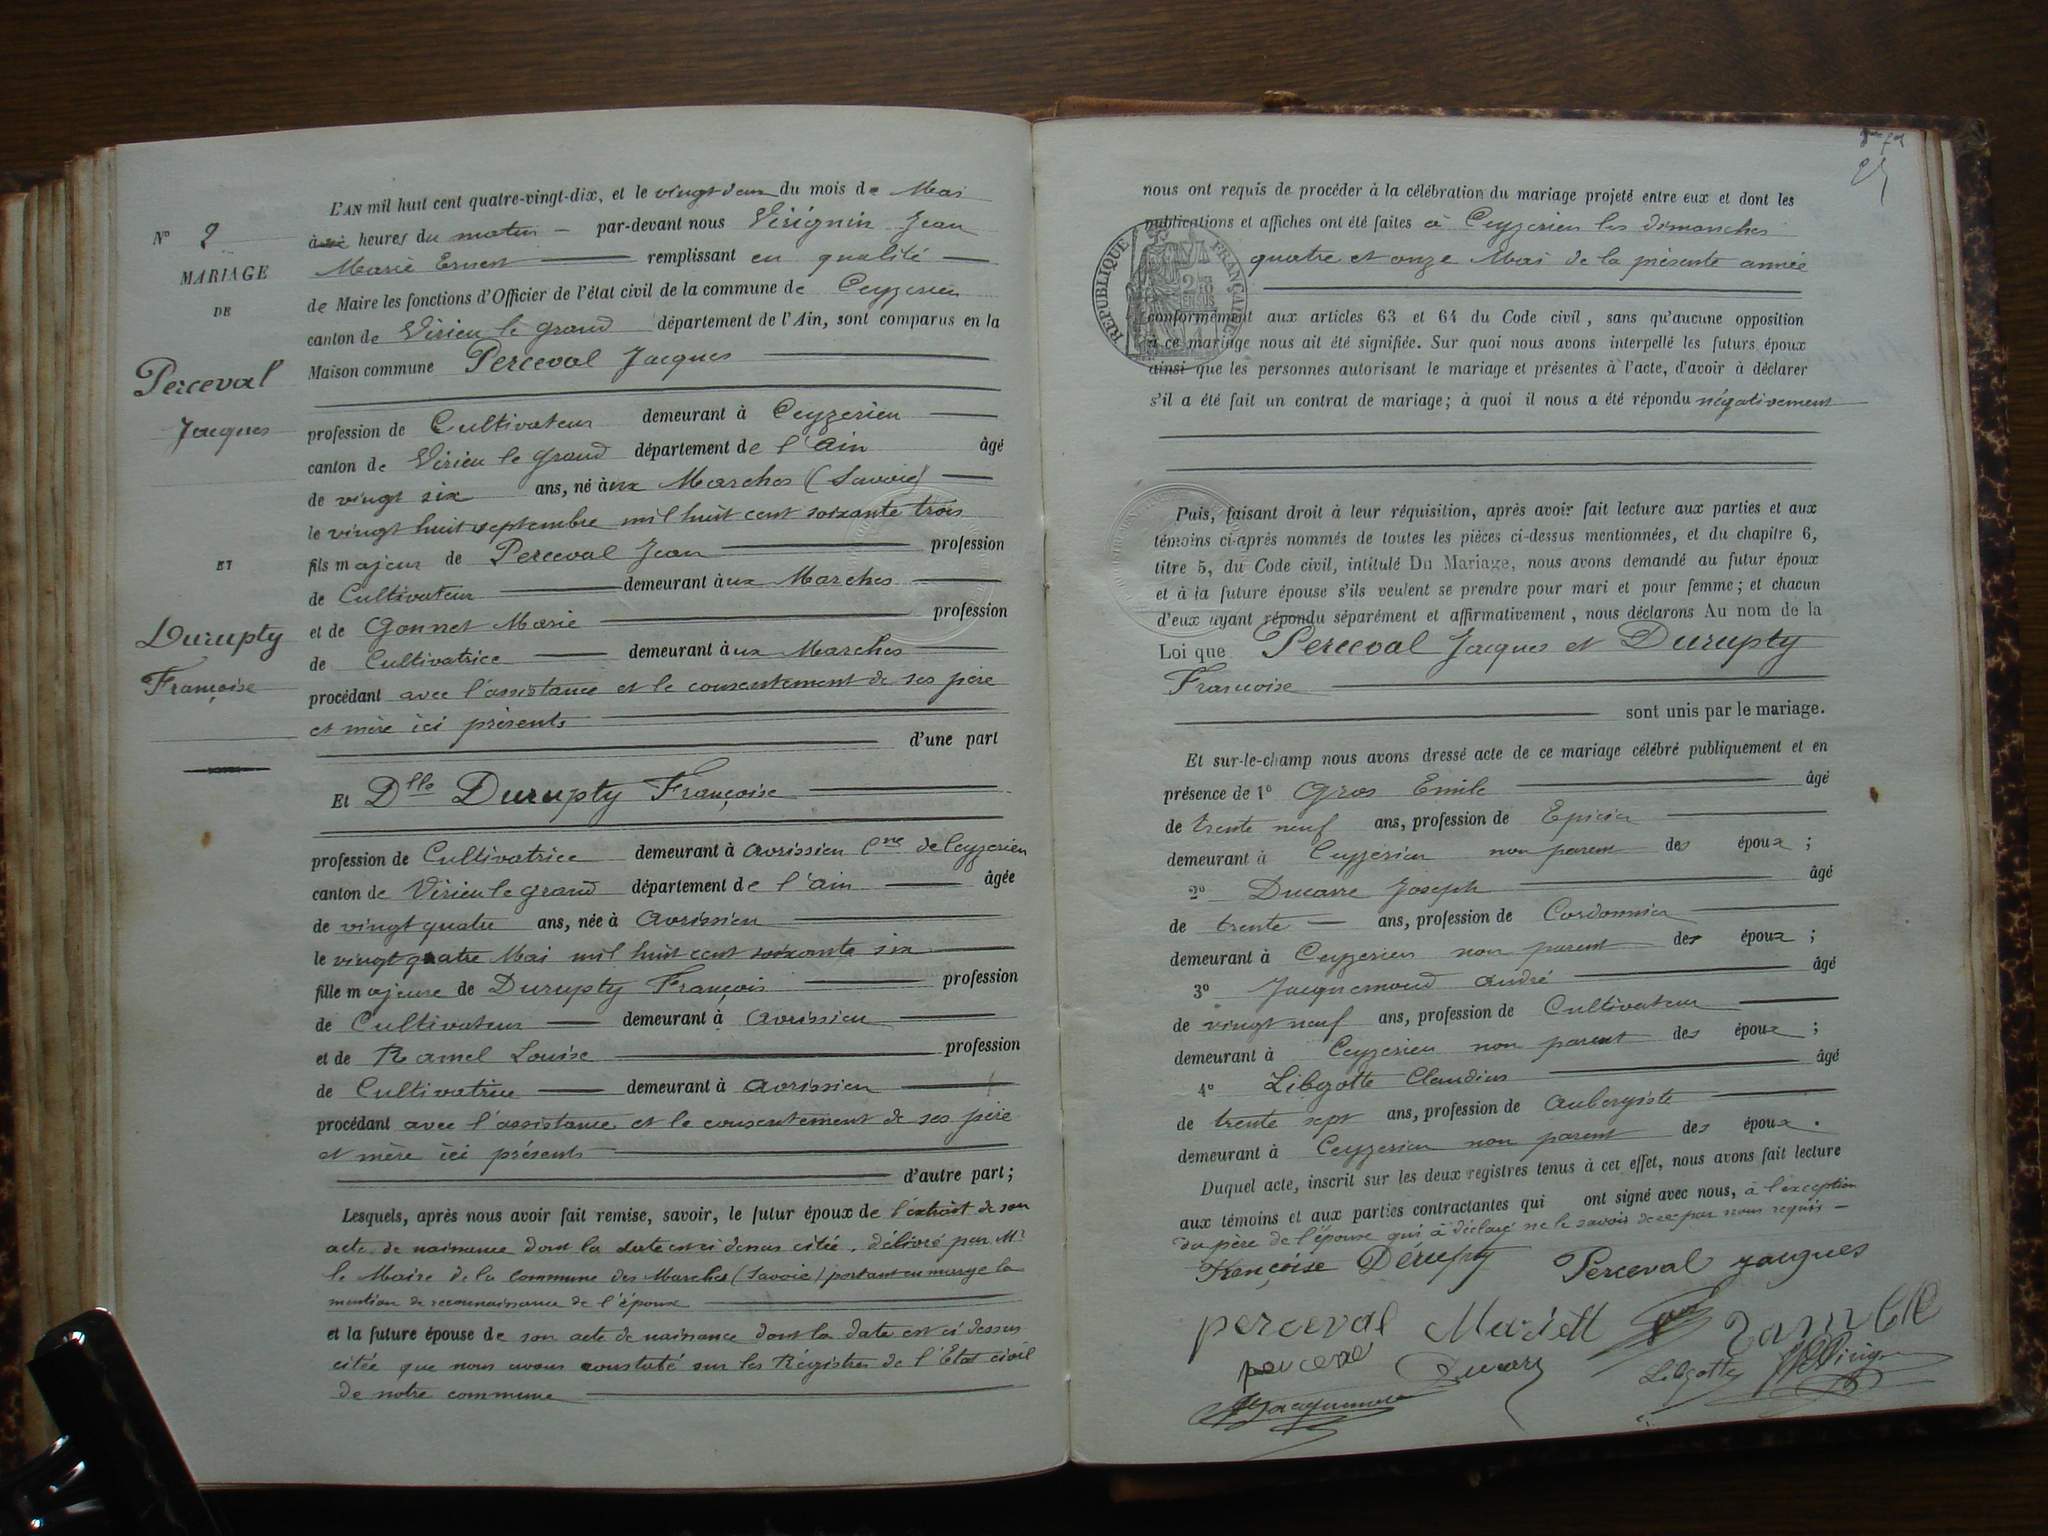 N° 2
MARIAGE
DE
Perceval
Jacques
ET
Durupty
Françoise
L'AN mil huit cent quatre-vingt-dix, et le vingt deux du mois de Mai
à heures du matin par-devant nous Virignin Jean
Marie Ernest remplissant en qualité
de Maire les fonctions d'Officier de l'état civil de la commune de Ceyzerieu
canton de Virieu le grand département de l'Ain, sont comparus en la
Maison commune Perceval Jacques
profession de Cultivateur demeurant à Ceyzerieu
canton de Virieu le grand département de l'Ain âgé
de vingt six ans, né aux Marches (Savoie)
le vingt huit septembre mil huit cent soixante trois
fils majeur de Perceval Jean profession
de Cultivateur demeurant aux Marches
et de Gonnet Marie profession
de Cultivatrice demeurant aux Marches
procédant avec l'assistance et le consentement de ses père
et mère ici présents
d'une part
Et Dlle Durupty Françoise
profession de Cultivatrice demeurant à Avrissieu Cne de Ceyzerieu
canton de Virieu le grand département de l'Ain âgée
de vingt quatre ans, née à Avrissieu
le vingt quatre Mai mil huit cent soixante six
fille majeure de Durupty François profession
de Cultivateur demeurant à Avrissieu
et de Ramel Louise profession
de Cultivatrice demeurant à Avrissieu
procédant avec l'assistance et le consentement de ses père
et mère ici présents
d'autre part;
Lesquels, après nous avoir fait remise, savoir, le futur époux de l'extrait de son
acte de naissance dont la date est ci dessus citée, délivré par Mr
le Maire de la commune des Marches (Savoie) portant en marge la
mention de reconnaissance de l'époux
et la future épouse de son acte de naissance dont la date est ci dessus
citée que nous avons constaté sur les Régistres de l'Etat civil
de notre commune
nous ont requis de procéder à la célébration du mariage projeté entre eux et dont les
publications et affiches ont été faites à Ceyzerieu les dimanches
quatre et onze Mai de la présente année
RÉPUBLIQUE FRANÇAISE
conformément aux articles 63 et 64 du Code civil, sans qu'aucune opposition
à ce mariage nous ait été signifiée. Sur quoi nous avons interpellé les futurs époux
ainsi que les personnes autorisant le mariage et présentes à l'acte, d'avoir à déclarer
s'il a été fait un contrat de mariage; à quoi il nous a été répondu négativement
Puis, faisant droit à leur réquisition, après avoir fait lecture aux parties et aux
témoins ci-après nommés de toutes les pièces ci-dessus mentionnées, et du chapitre 6,
titre 5, du Code civil, intitulé Du Mariage, nous avons demandé au futur époux
et à la future épouse s'ils veulent se prendre pour mari et pour femme; et chacun
d'eux ayant répondu séparément et affirmativement, nous déclarons Au nom de la
Loi que Perceval Jacques et Durupty
Françoise
sont unis par le mariage.
Et sur-le-champ nous avons dressé acte de ce mariage célébré publiquement et en
présence de 1° Gros Emile âgé
de trente neuf ans, profession de Epicier
demeurant à Ceyzerieu non parent des époux;
2° Ducarre Joseph âgé
de trente ans, profession de Cordonnier
demeurant à Ceyzerieu non parent des époux;
3° Jacquemoud André âgé
de vingt neuf ans, profession de Cultivateur
demeurant à Ceyzerieu non parent des époux;
4° Libgotte Claudius âgé
de trente sept ans, profession de Aubergiste
demeurant à Ceyzerieu non parent des époux.
Duquel acte, inscrit sur les deux registres tenus à cet effet, nous avons fait lecture
aux témoins et aux parties contractantes qui ont signé avec nous, à l'exception
du père de l'épouse qui à déclaré ne le savoir de ce par nous requis
Françoise Derupty Perceval jacques
perceval
perceval Ducarre Libgotte
Jacquemoud